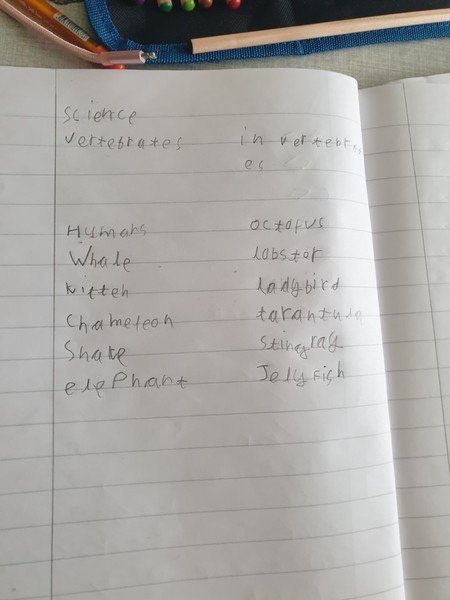 Science
vertebrates invertebrat
es
Humans octopus
Whale lobster
kitten ladybird
Chameleon tarantula
Shake stingray
elephant Jellyfish